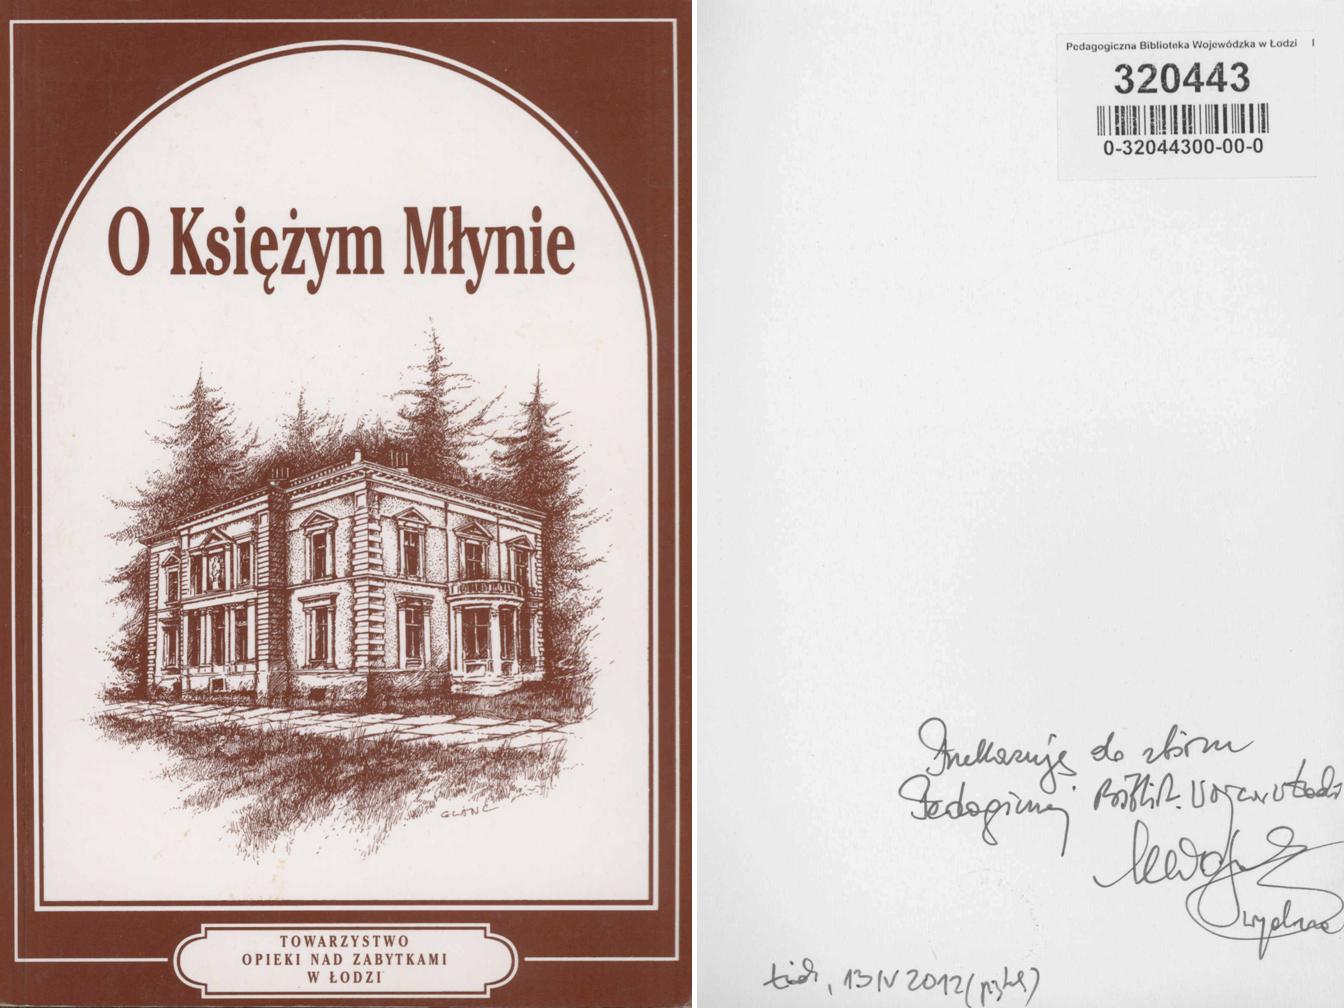 O Księżym Młynie
GLONE
TOWARZYSTWO
OPIEKI NAD ZABYTKAMI
W ŁODZI
Pedagogiczna Biblioteka Wojewódzka w Łodzi I
320443
0-32044300-00-0
Przekazuję do zbioru
Pedagogicznej Bibliot. Wojew w Łodzi
Łódź, 13 IV 2012 (piątek)